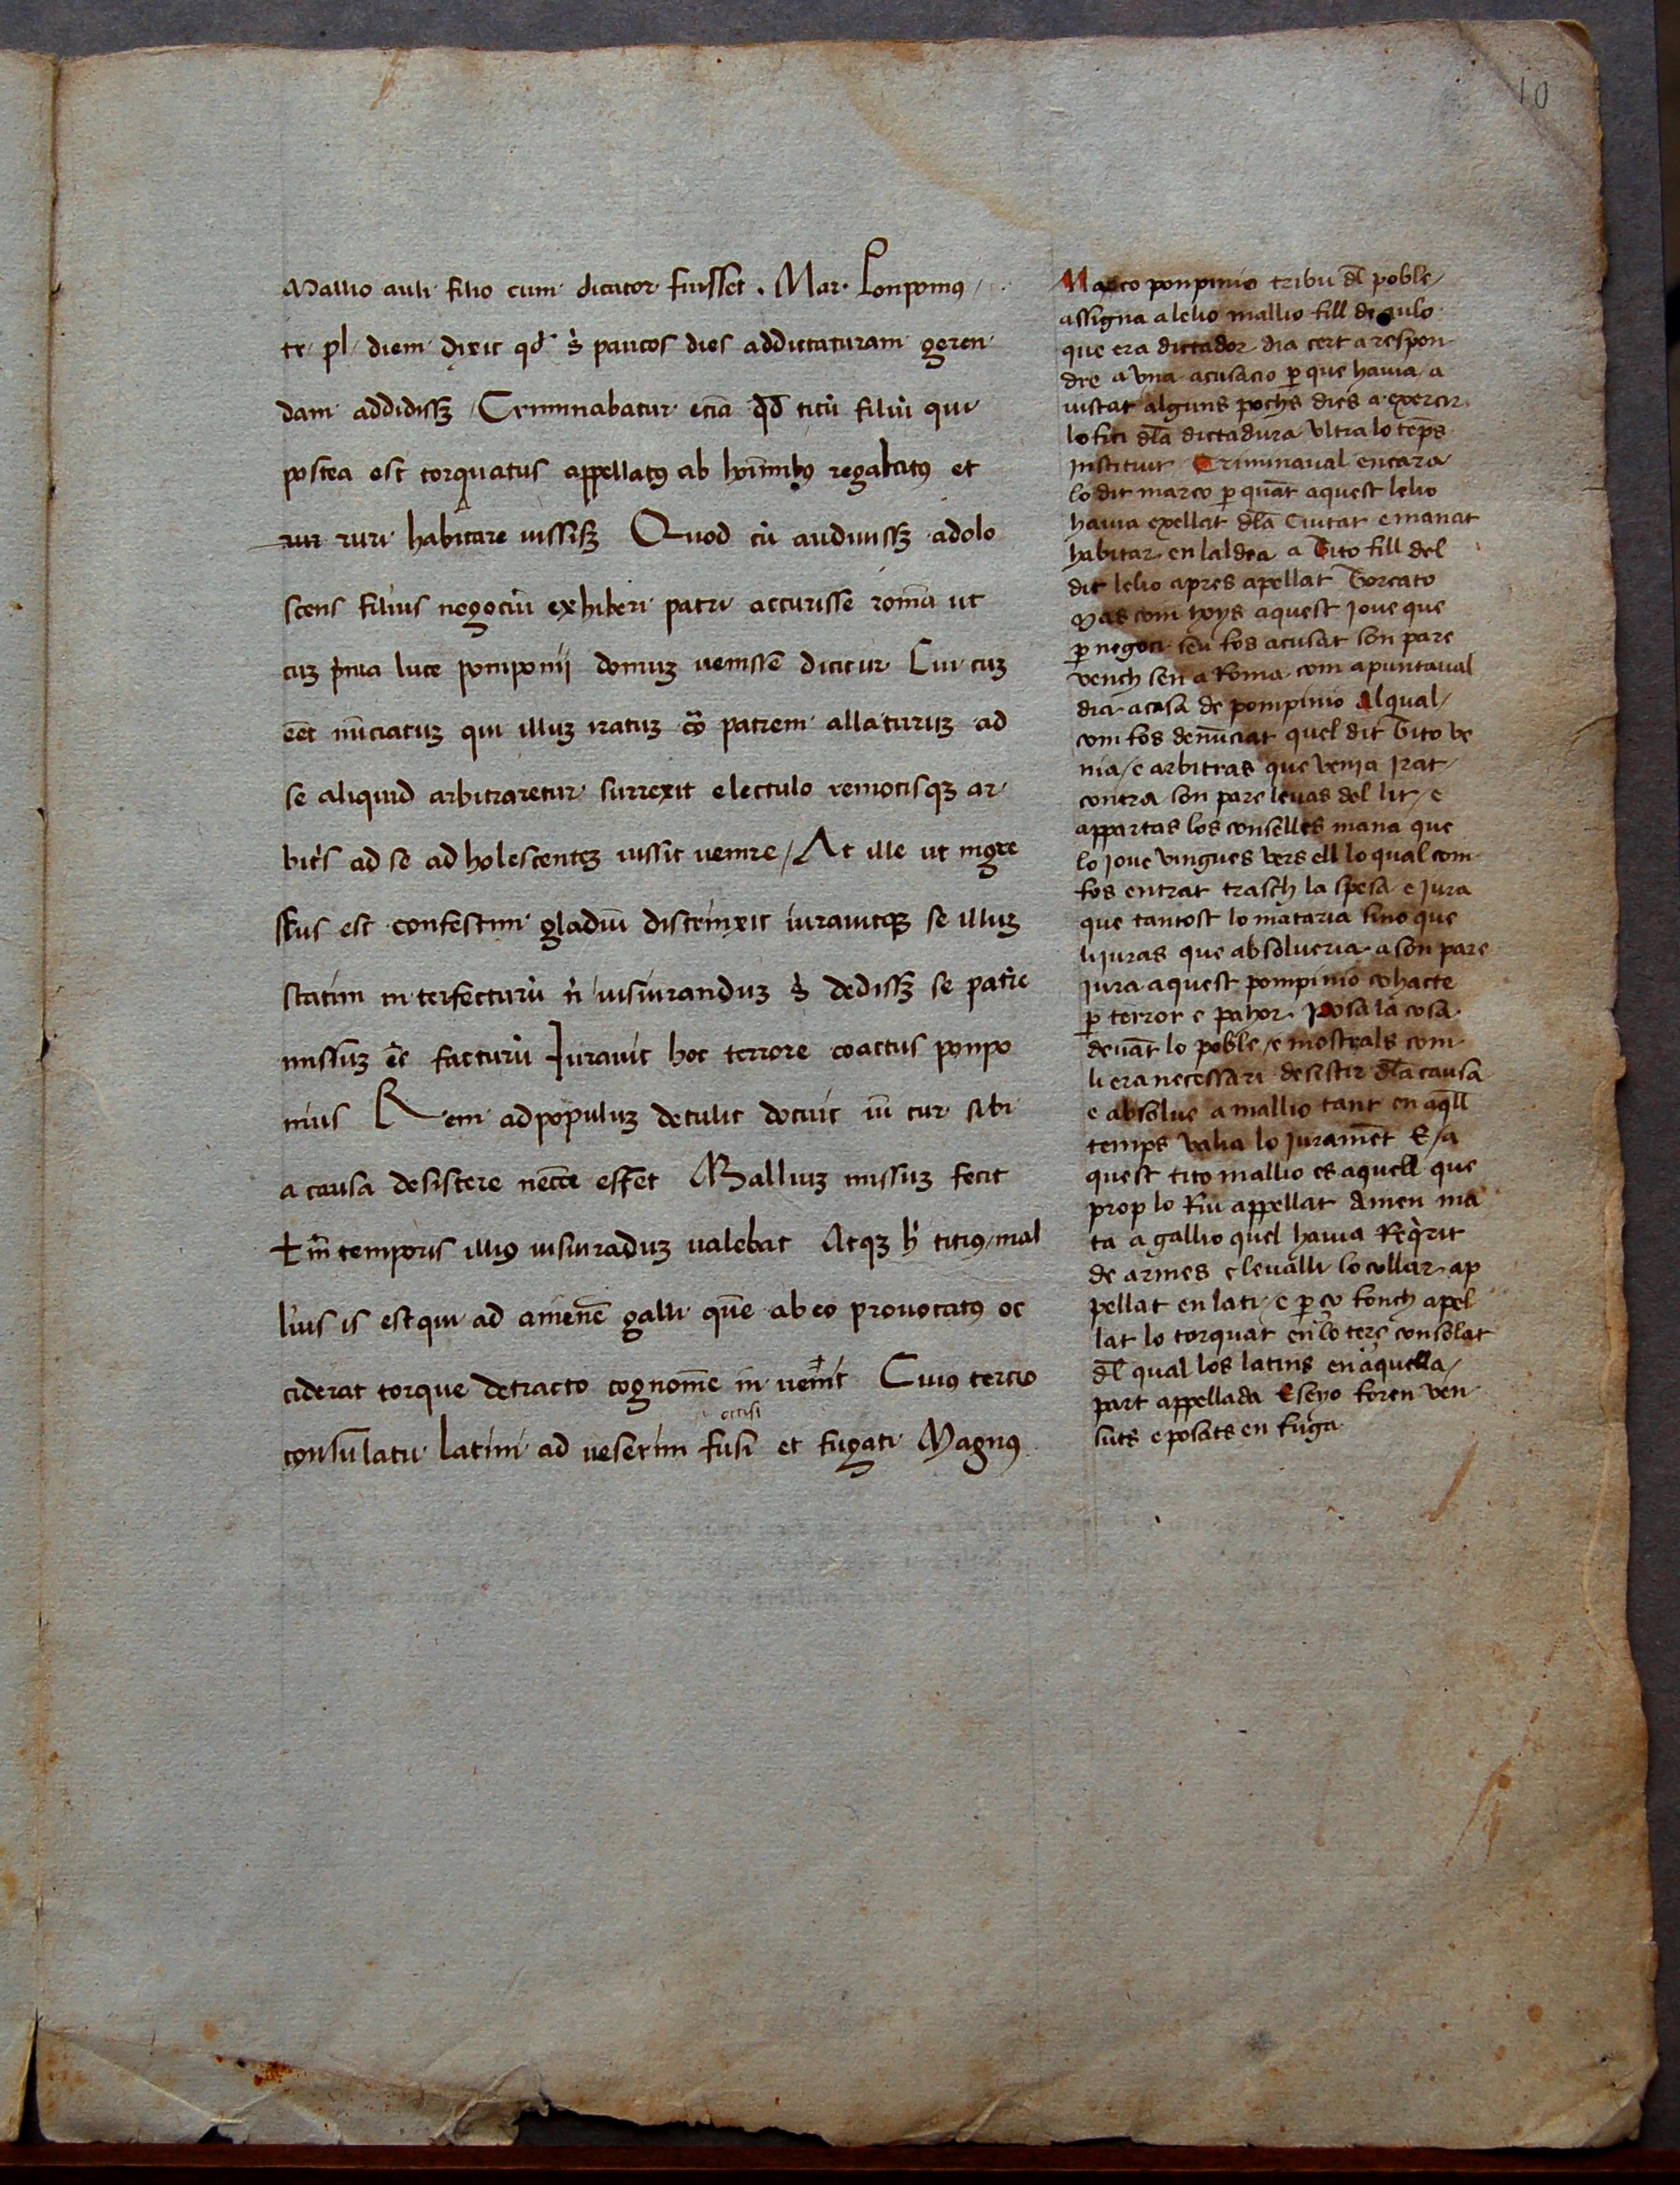 10
Mallio auli filio cum dictator fuisset. Mar. Ponponius
tr. pl. diem dixit qd' s' paucos dies addictaturam geren
dam addidissꝫ Criminabatur eciā qd̄ titū filiū qui
postea est torquatus appellatꝰ ab hoīnibꝰ regalatꝰ et
rur ruri habitare iussisꝫ Quod cū audiuissꝫ adolo
scens filius negociū exhiberi patri accurisse romā ut
cuꝫ p̄ma luce pomponij domuꝫ uenissē dicitur Cui cuꝫ
eēt nūciatuꝫ qui illuꝫ iratuꝫ cō patrem allaturuꝫ ad
se aliquid arbitraretur surrexit electulo remotisqꝫ ar
bit's ad se ad holescenteꝫ iussit uenire / At ille ut ingre
ssus est confestim gladiū discrinxit iurauitqꝫ se illuꝫ
statim in terfecturū n' iusiuranduꝫ s' dedissꝫ se patrē
missuꝫ eē facturū Iurauit hoc terrore coactus ponpo
nius Rem adpopuluꝫ detulit docuit iū cur sibi
a causa desistere necē esset Malliuꝫ missuꝫ fecit
tm̄ temporis illiꝰ iusiuraduꝫ ualebat Atqꝫ h' titiꝰ / mal
lius is est qui ad amenē galli quē ab eo prouocatꝰ oc
ciderat torque detracto cognomē in uenit Cuiꝰ tercio
occisi
consulatu latini ad veserim fusi et fugati Magnꝰ
Marco ponpinio tribu dl̄ poble /
assigna a lelio mallio fill de aulo
que era dictador dia cert a respon
dre a vna acusacio ꝑ que hauia / a
iustat alguns pochs dies a exercir
lofici dl̄a dictadura Vltra lo tēps
instituit Criminaual encara
lo dit marco ꝑ quāt aquest lelio
hauia exellat dl̄a Ciutat e manat
habitar en laldea a Tito fill del
dit lelio apres apellat Torcato
Mas com hoys aquest Joue que
ꝑ negoci seu fos acusat son pare
vench sen a Roma com apuntaual
dia acasa de pompinio Alqual /
com fos denūciat quel dit Tito ve
nia / e arbitras que venia Irat
contra son pare leuas del lit / e
appartas los consellers mana que
lo Joue vingues vers ell lo qual com
fos entrat trasch la spesa e Jura
que tantost lo mataria sino que
li juras que absolueria a son pare
Jura aquest pompinio cohacte
ꝑ terror e pahor. Posa la cosa
deuāt lo poble / e mostrals com
li era necessari desistir dl̄a causa
e absolue a mallio tant en aqll̄
temps valia lo Juramēt E / a
quest tito mallio es aquell que
prop lo Riu appellat Amen ma
ta a gallio quel hauia Reqrit
de armes e leualli lo collar ap
pellat en lati / e ꝑ ço fonch apel
lat lo torquat en lo terç consolat
dl̄ qual los latins en aquella /
part appellada Eseyo foren ven
suts e posats en fuga